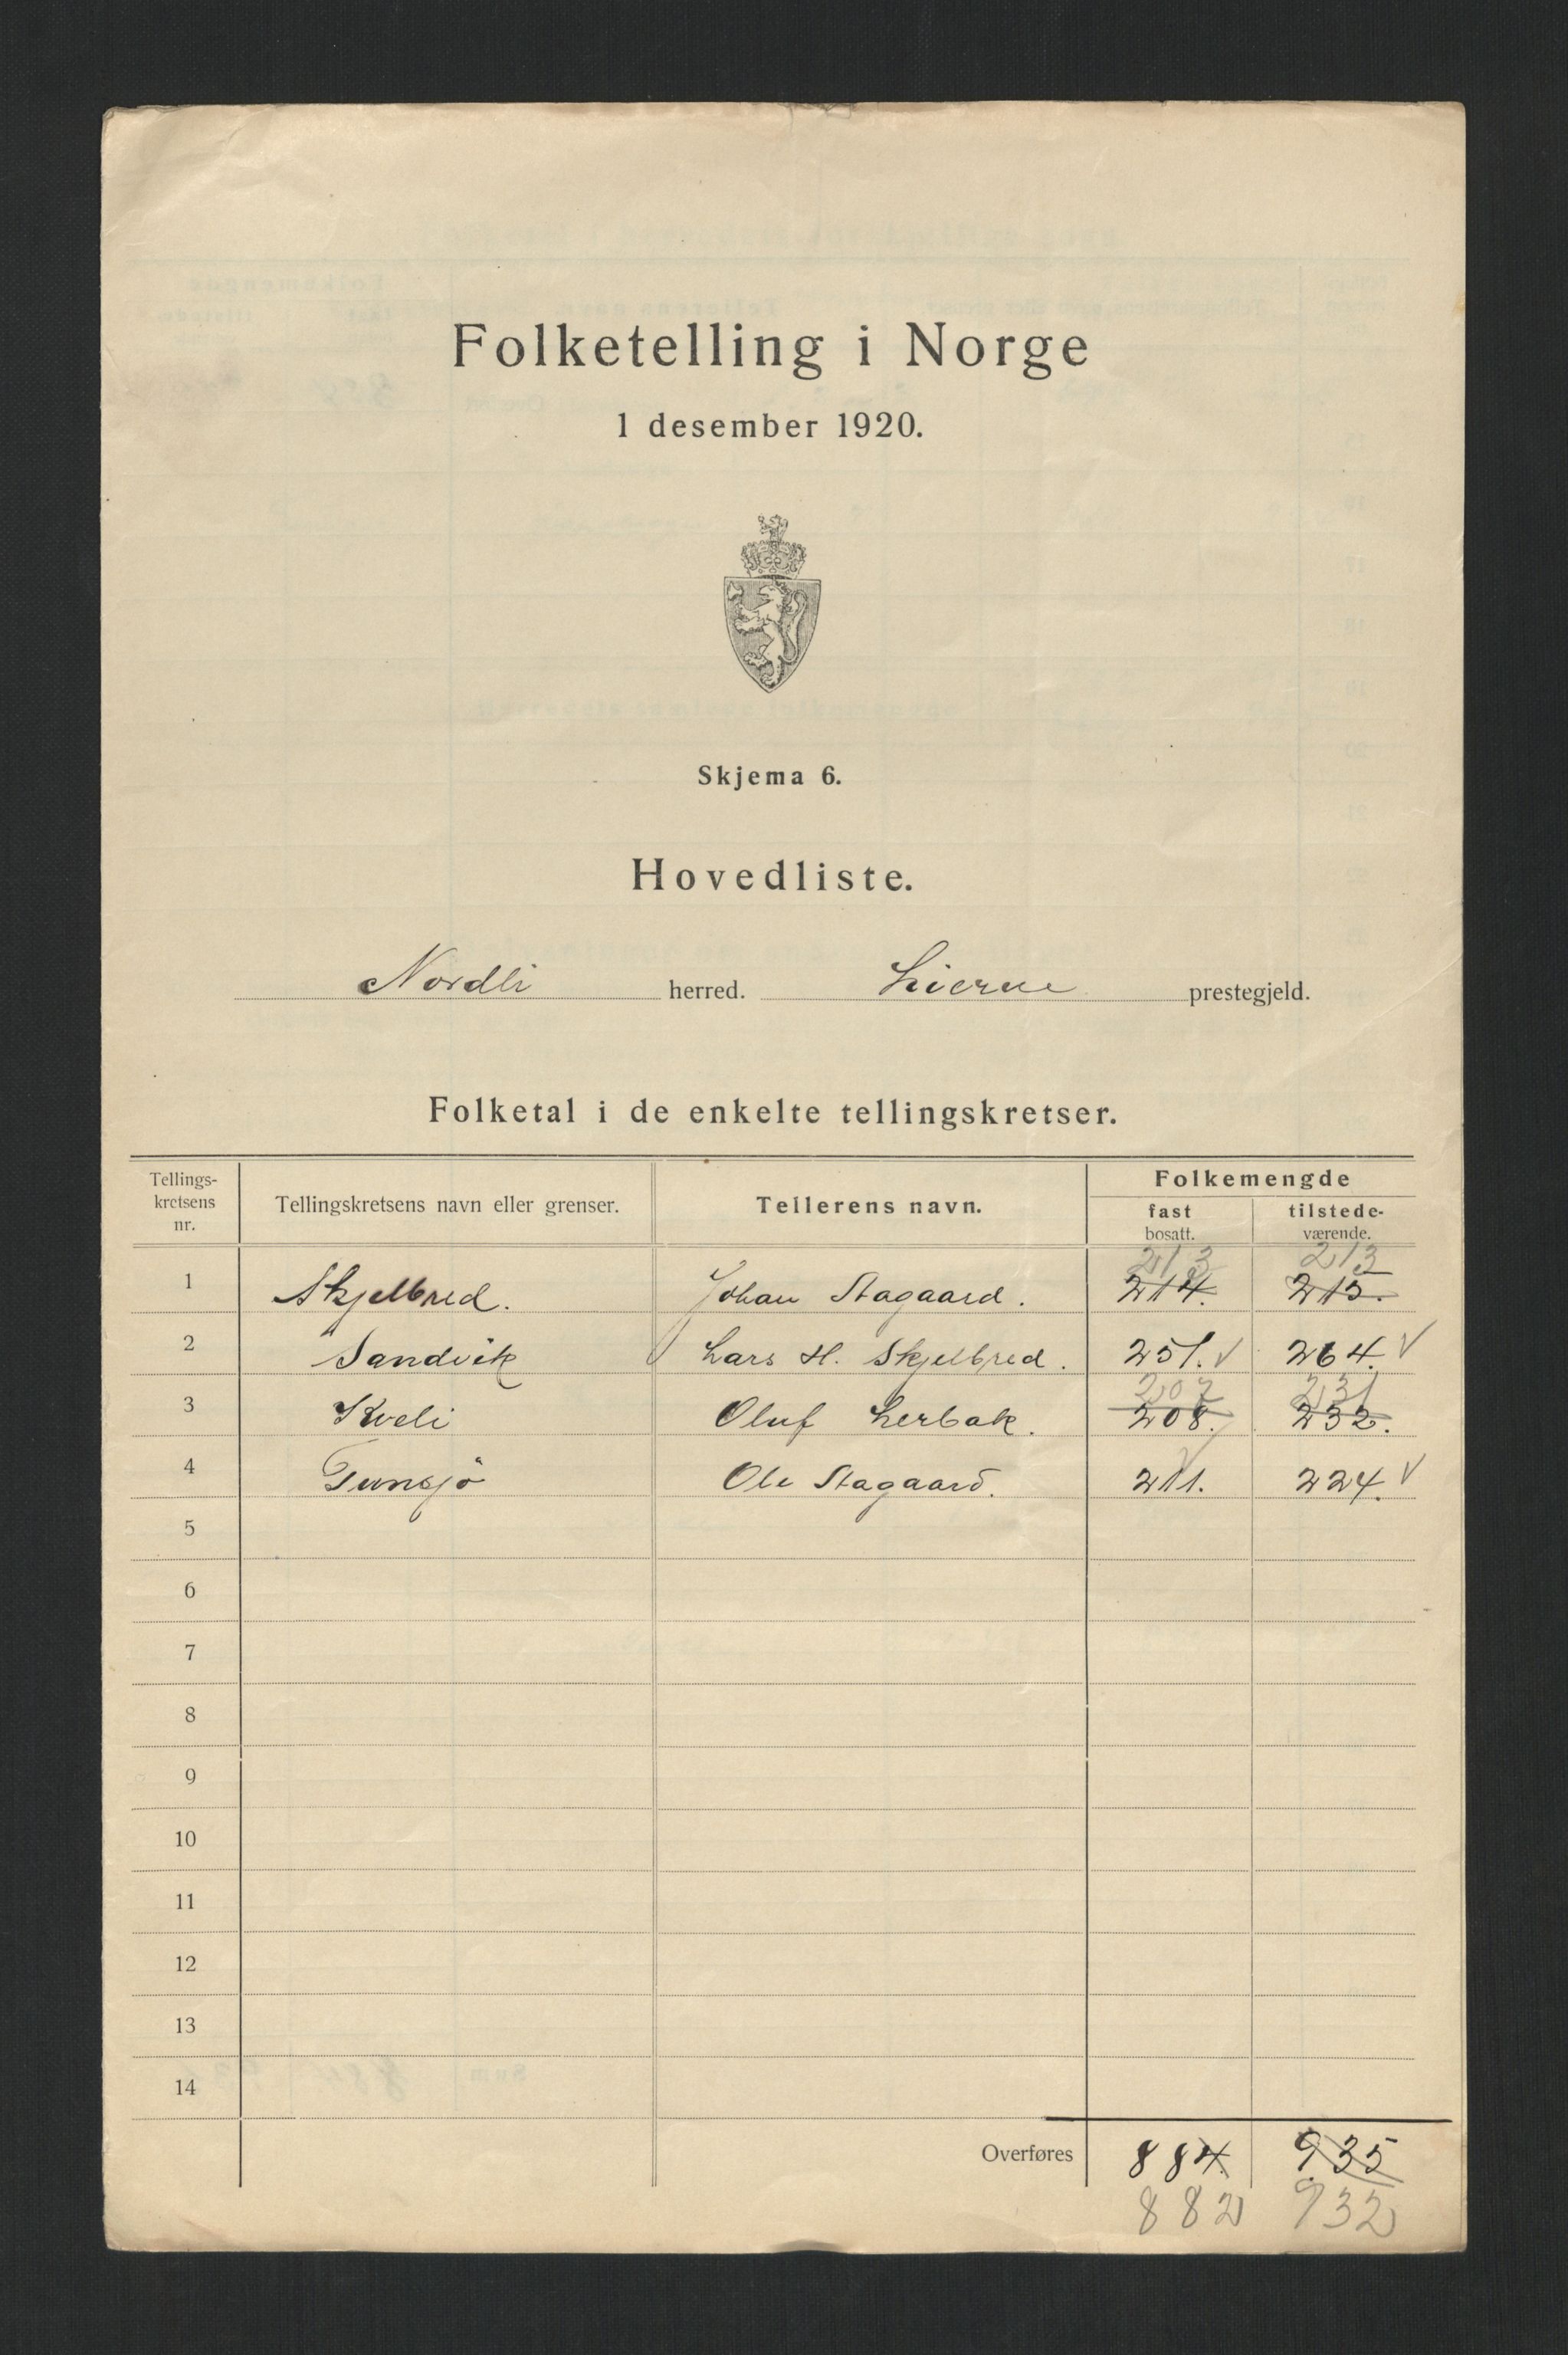 Folketelling i Norge
1 desember 1920.
Skjema 6.
Hovedliste.
Nordli herred. Lierne prestegjeld.
Folketal i de enkelte tellingskretser.
Tellings-
kretsens
nr.
Tellingskretsens navn eller grenser.
Tellerens navn.
Folkemengde
fast
bosatt.
tilstede-
værende.
213 213
1 Skjelbred. Johan Stagaard. 214. 215.
2 Sandvik Lars H. Skjelbred. 251. √ 264. √
207 231
3 Kveli Oluf Lerbak. 208. 232.
4 Tunsjö Ole Stagaard. 211. √ 224. √
5
6
7
8
9
10
11
12
13
14
Overføres 884. 935
882 932